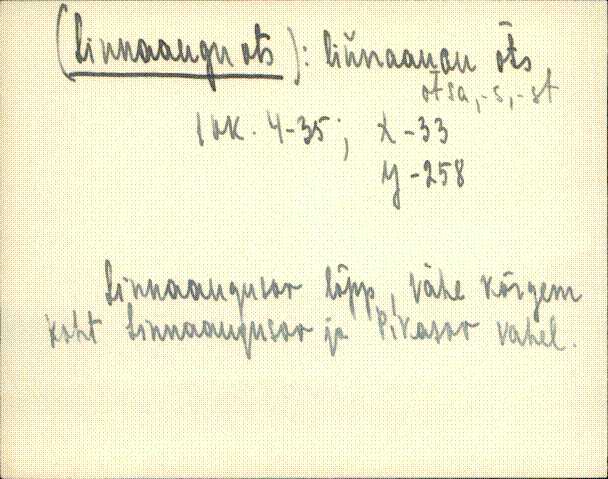 (Linnaangu ots): liňnaanɢu òts
otsa, -s, -st
lok. 4-35; x-33
y-258
Linnaangusoo lõpp, vähe kõrgem
koht Linnaangusoo ja Pikasoo vahel.